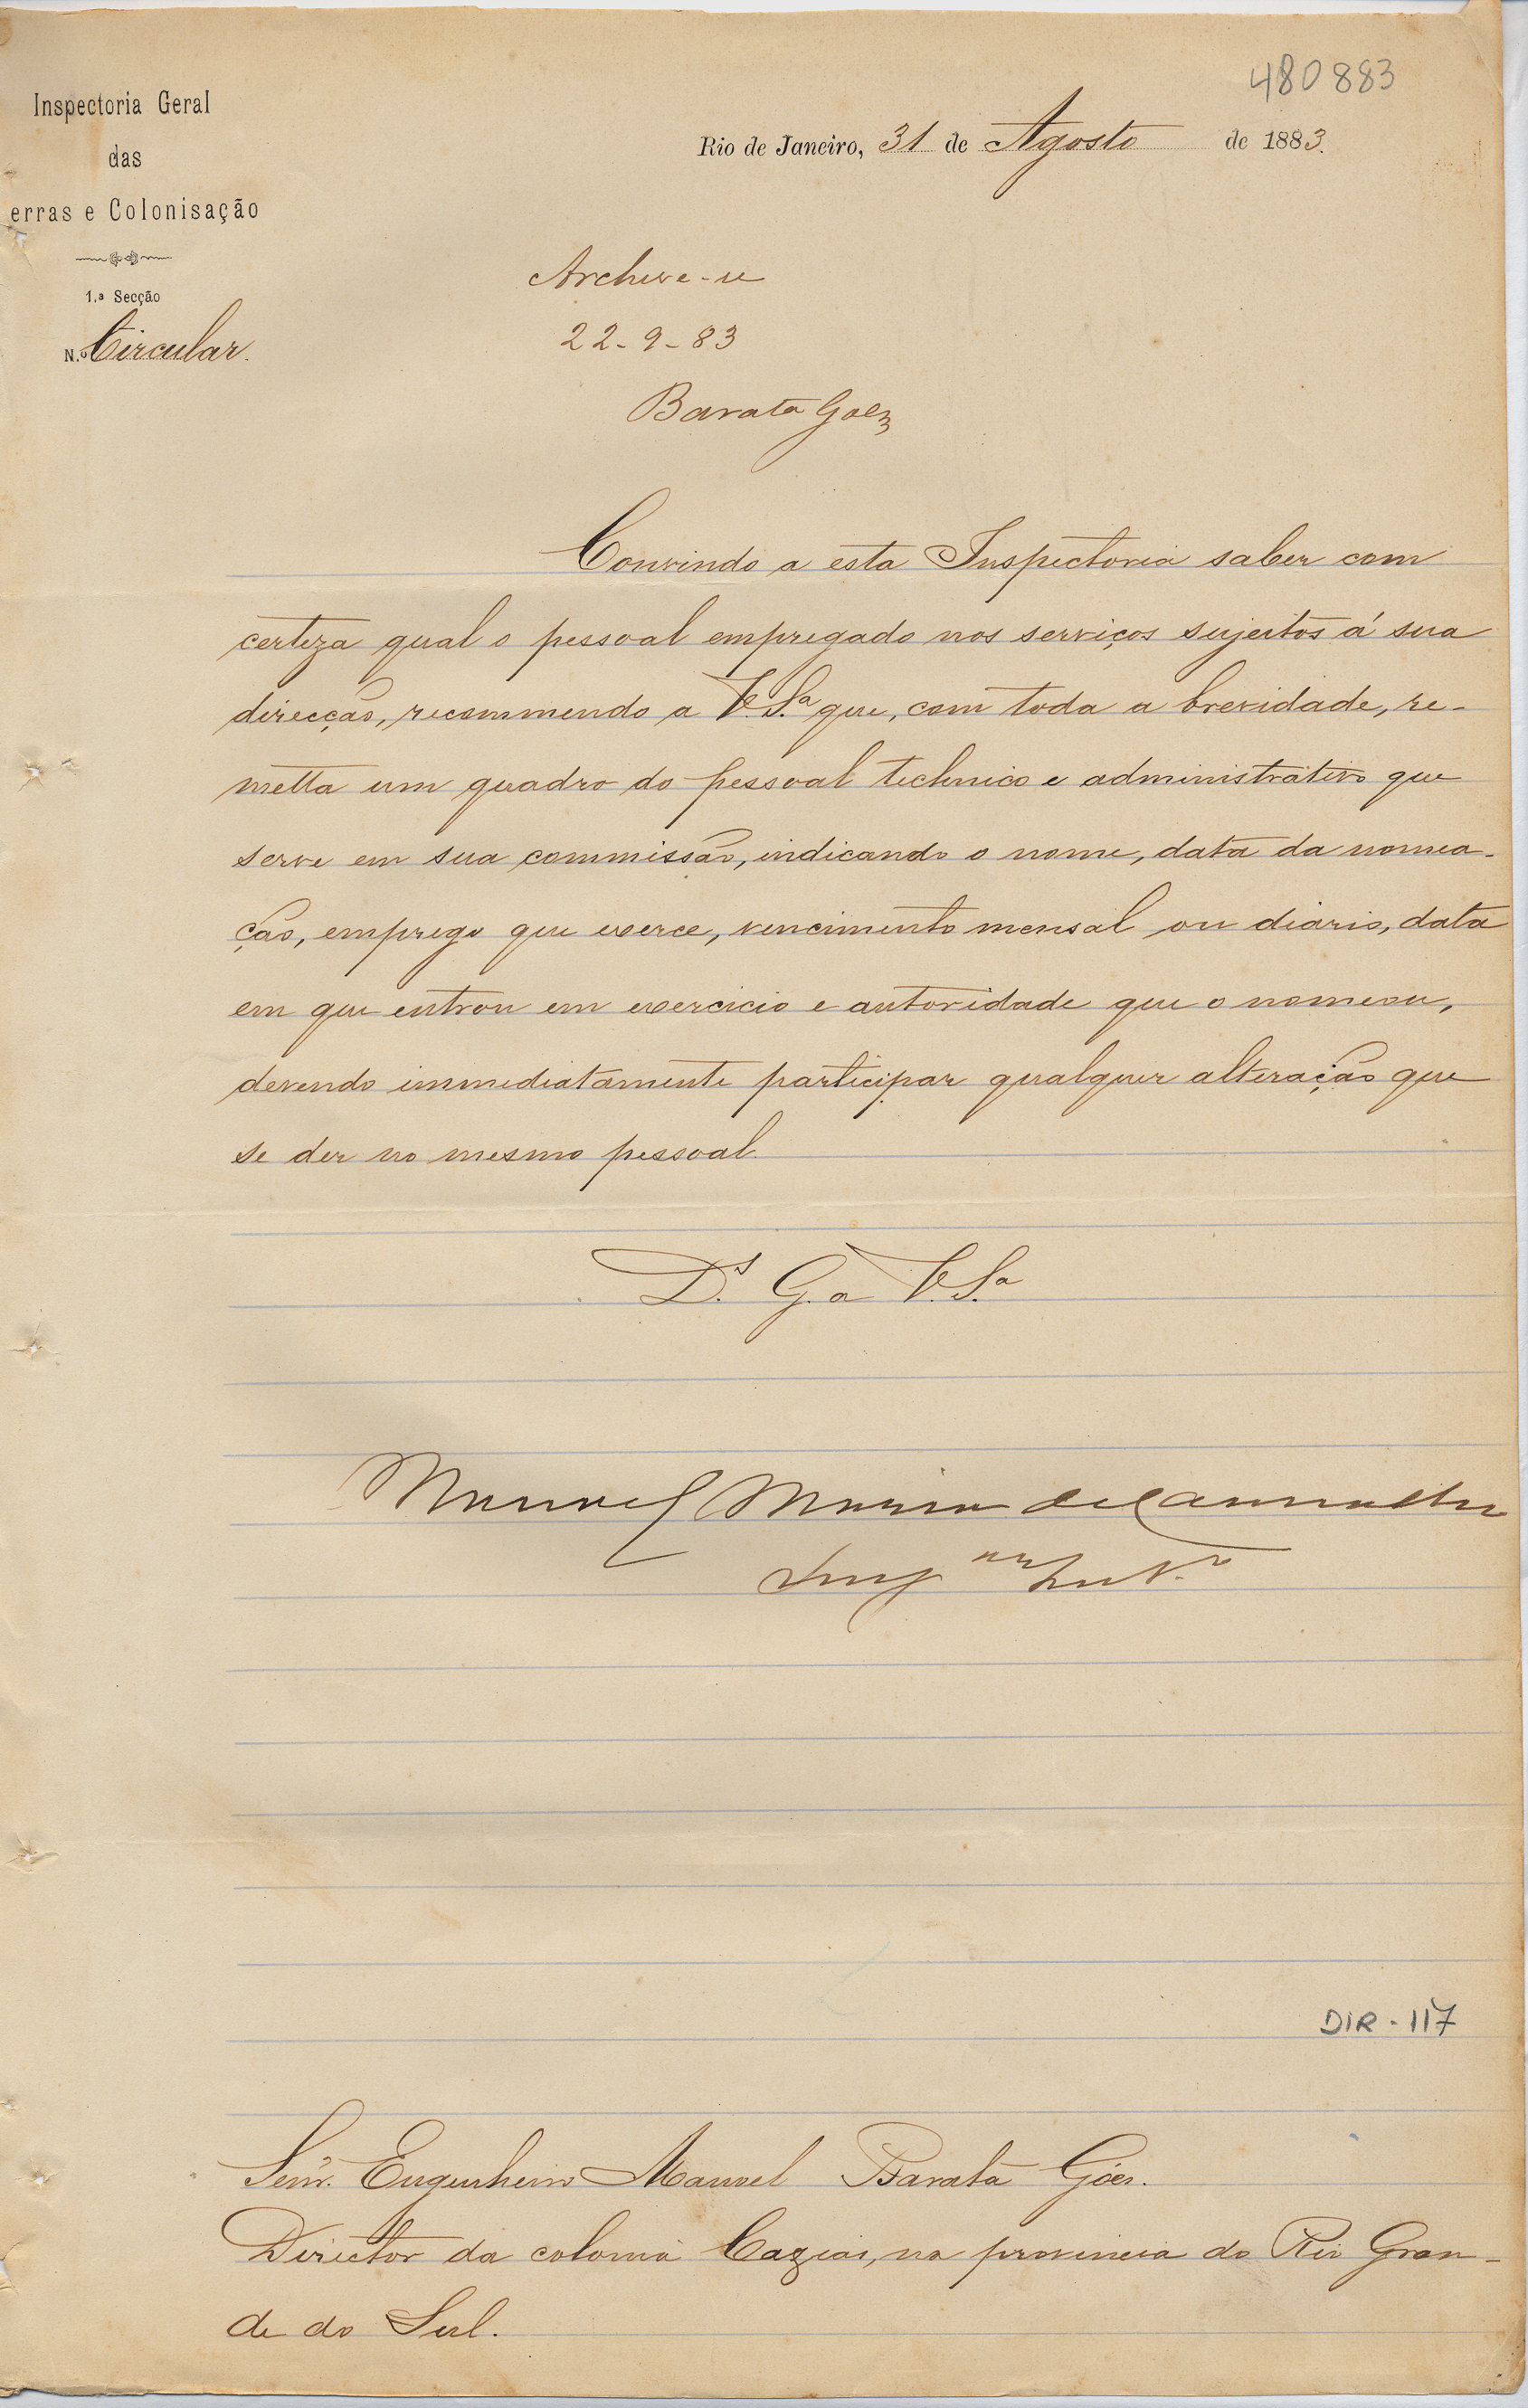 480883
Inspectoria Geral
das
erras e Colonisação
1.ª Secção
N.º Circular.
Rio de Janeiro, 31 de Agosto de 1883.
Archive-se
22-9-83
Barata Goes
Convindo a esta Inspectoria saber com
certeza qual o pessoal empregado nos serviços sujeitos á sua
direcção, recommendo a V.S.ª que, com toda a brevidade, re-
metta um quadro do pessoal technico e administrativo que
serve em sua commissão, indicando o nome, data da nomea-
ção, emprego que exerce, vencimento mensal ou diario, data
em que entrou em exercicio e autoridade que o nomeou,
devendo immediatamente participar qualquer alteração que
se der no mesmo pessoal.
D.s G. a V.S.ª
Manoel Maria de Carvalho
DIR-117
Senr. Engenheiro Manoel Barata Góes.
Director da colonia Caxias, na provincia do Rio Gran-
de do Sul.